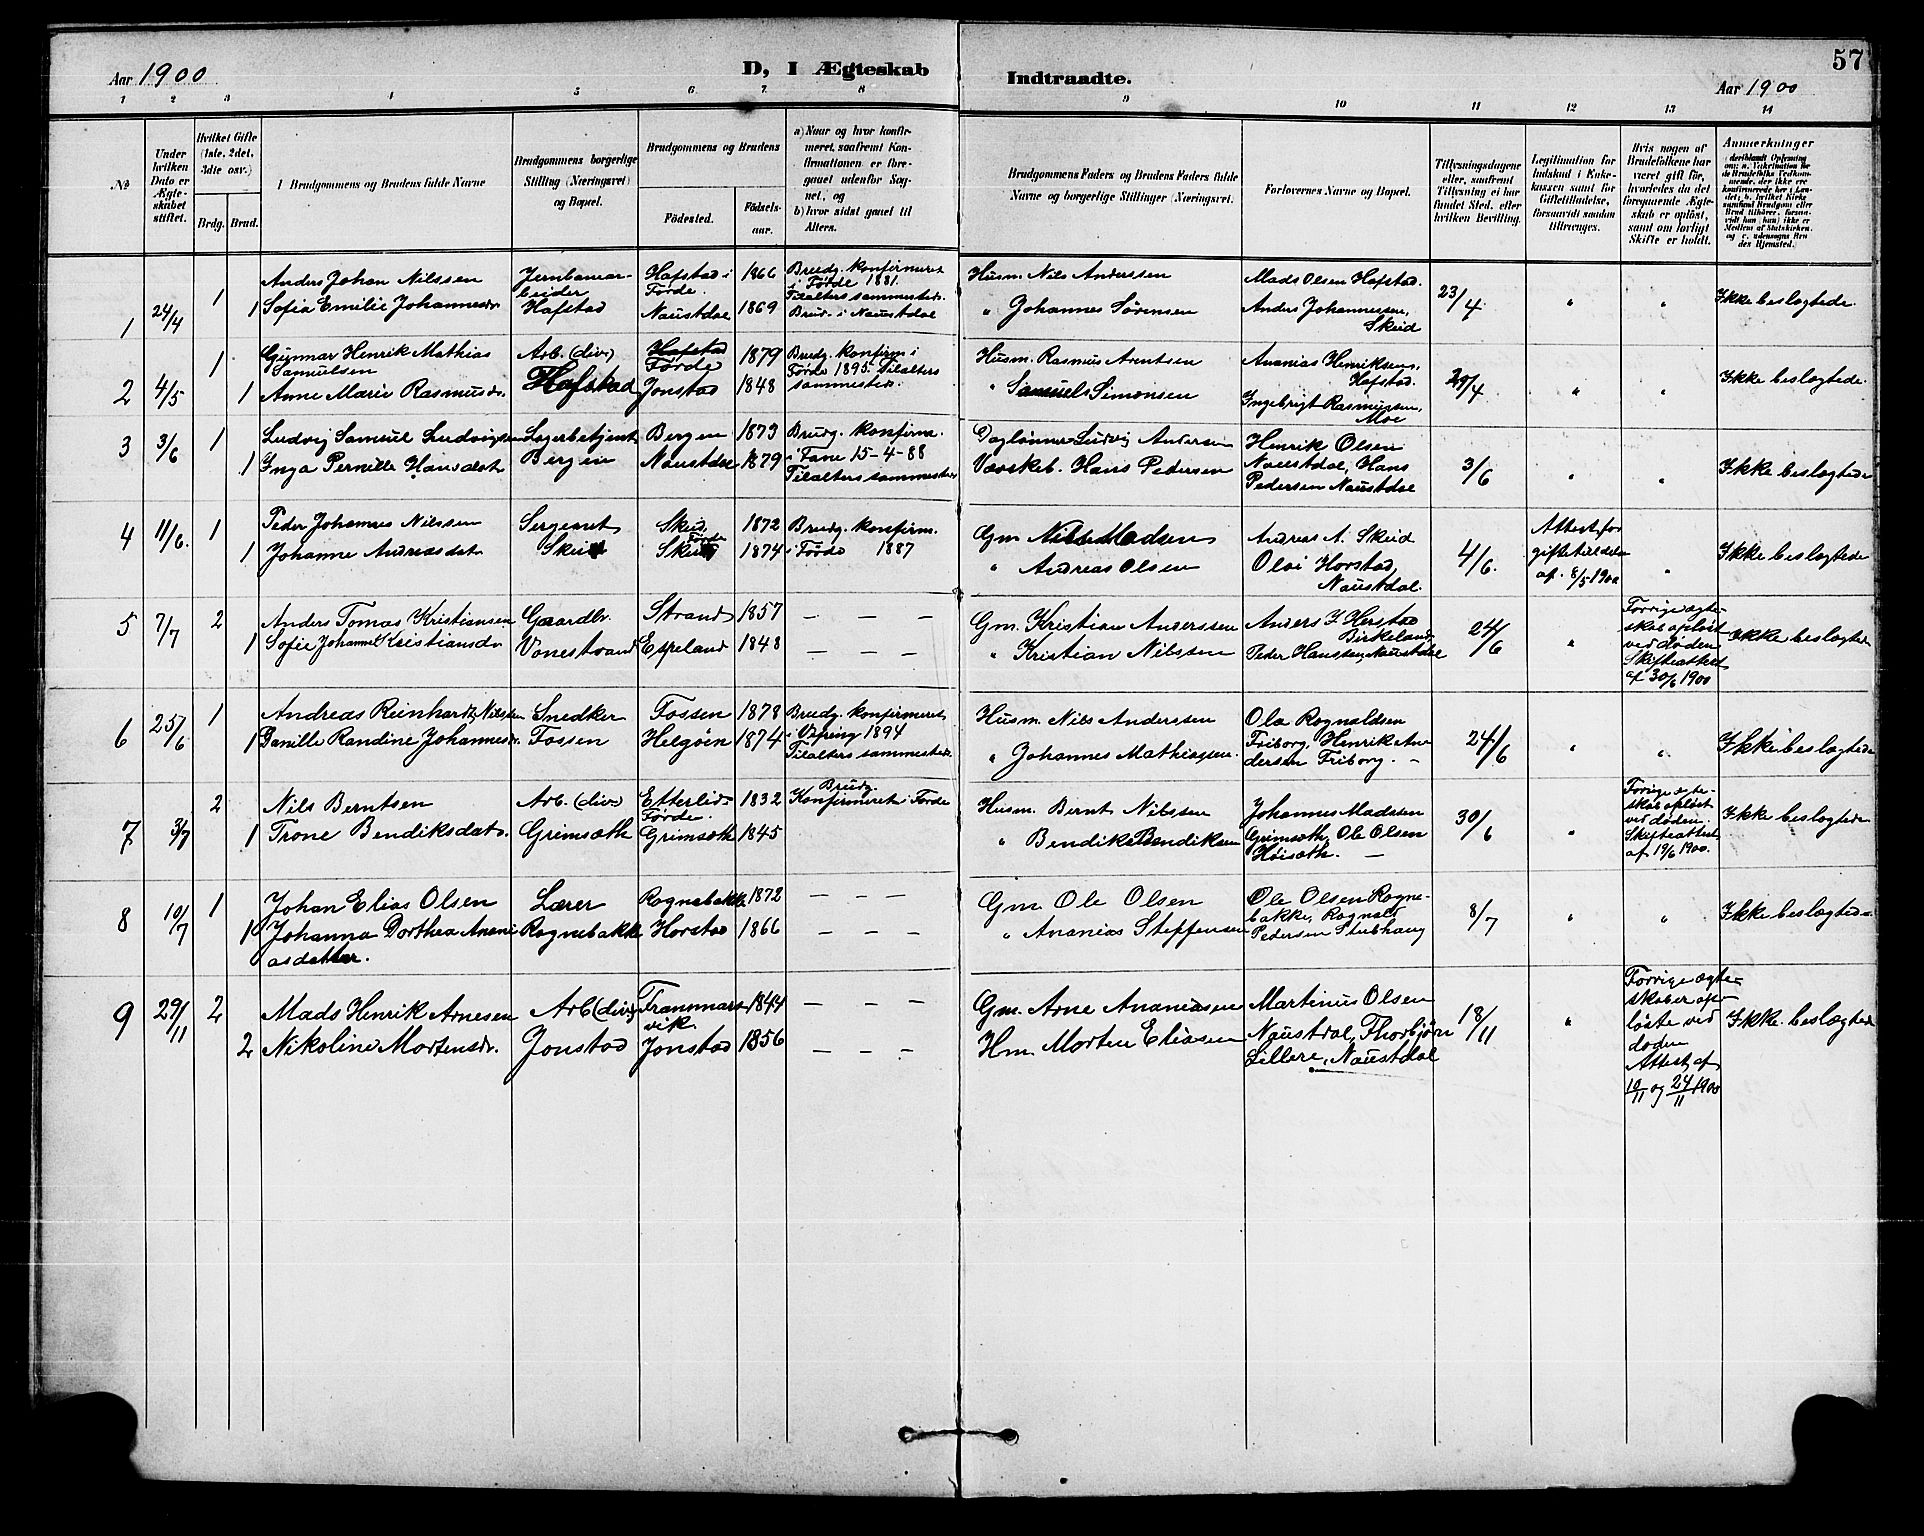 57
Aar 1900
D, I Ægteskab
Indtraadte.
Aar 1900
1 2 3 4 5 6. 7. 8 9 10 11 12 13 14
№
Under hvilken Dato er Ægteskabet stiftet.
Hvilket Gifte (1ste, 2det, 3dte osv.)
Brdg. Brud.
Brudgommens og Brudens fulde Navne
Brudgommens borgerlige Stilling (Næringsvei) og Bopæl.
Brudgommens og Brudens
Fødested.
Fødselsaar.
a) Naar og hvor konfirmeret, saafremt Konfirmationen er foregaaet udenfor Sognet, og
b) hvor sidst gaaet til Alters.
Brudgommens Faders og Brudens Faders fulde Navne og borgerlige Stillinger (Næringsvei.
Forlovernes Navne og Bopæl.
Tillysningsdagene eller, saafremt Tillysning ei har fundet Sted, efter hvilken Bevilling.
Legitimation for Indskud i Enkekassen samt for Giftetilladelse, forsaavidt saadan tiltrænges.
Hvis nogen af Brudefolkene har været gift før, hvorledes da det foregaaende Ægteskab er opløst, samt om lovligt Skifte er holdt.
Anmerkninger
1 24/4 1 Anders Johan Nilssen Jernbanearbeider Hafstad i Førde. 1866 Brudg. konfirmeret i Førde 1881. Tilalters sammesteds.
1 Sofia Emilie Johannesdr Hafstad Naustdal 1869 Brud. i Naustdal
Husm. Nils Anderssen Mads Olsen Hafstad. 23/4 " " Ikke beslægtede.
" Johannes Sørensen Anders Johannessen, Skeid
2 4/5 1 Gunnar Henrik Mathias Samuelsen Arb. (div.) Hafstad Førde 1879 Brudg. konfirm i Førde 1895. Tilalters sammesteds.
1 Anne Marie Rasmusdr. Hafstad Jonstad 1848
Husm. Rasmus Arntsen Ananias Henriksen, Hafstad. 29/4 " " Ikke beslægtede.
" Samuel Simonsen Ingebrigt Rasmussen, Moe
3 3/6 1 Ludvig Samuel Ludvigsen Lagerbetjent Bergen 1873 Brudg. konfirm. i Fane 15-4-88
1 Inga Pernille Hansdat Bergen Naustdal 1879 Tilalters sammesteds
Daglønner Ludvig Andersen Henrik Olsen Naustdal, Hans Pedersen Naustdal 3/6 " " Ikke beslægtede
Hans Pedersen
4 11/6. 1 Peder Johannes Nilssen Sergeant Skeid, Førde 1872 Brudg. konfirm. i Førde 1887
1 Johanne Andreasdat Skeid Skeid 1874
Gm Nils Madsen Andreas A. Skeid 4/6. Attest for giftetilladelse af. 8/5 1900 " Ikke beslægtede
" Andreas Olsen Horstad, Naustdal.
5 7/7 2 Anders Tomas Kristiansen Gaardbr. Strand 1857 — — —
1 Sofie Johanne Kristiansdr Vonestrand Espeland 1848 — — —
Gm. Kristian Anderssen Anders Birkeland, 24/6 " Forrige ægteskab opløst ved døden Skifteattest af 30/6 1900 Ikke beslægtede
" Kristian Nilssen Peder Hanssen, Naustdal
6 25/6 1 Andreas Reinhardt Nilssen Snedker Fossen 1878 Brudg. konfirmeret i Vefring 1894
1 Randine Johannesdr. Fossen Helgøen 1874 Tilalters sammesteds
Husm. Nils Anderssen Ola Rognaldsen Friborg, Henrik Andersen Friborg. — 24/6 " " Ikke beslægtede
" Johannes Mathiassen
7 3/7 2 Nils Berntsen Arb. (div) Førde. 1832 Brudg. Konfirmeret i Førde
1 Trone Bendiksdat. Grimsæth Grimsæth 1845
Husm. Bernt Nilssen Johannes Madssen Grimsæth, Ole Olsen Høisæth. — 30/6 " Forrige ægteskab opløst ved døden. Skifteattest af 19/6 1900. Ikke beslægtede
" Bendik Bendiksen
8 10/7 1 Johan Elias Olsen Lærer Rognebakke 1872 — — —
1 Johanna Dorthea Ananiasdatter. Rognebakke Horstad 1866 — — —
Gm. Ole Olsen Ole Olsen Rognebakke, Rognald Pedersen Stubhaug 8/7 " " Ikke beslægtede
" Ananias Steffensen
9 29/11 2 Mads Henrik Arnesen Arb (div) Frammarsvik. 1844 — — —
2 Nikoline Mortensdr. Jonstad Jonstad 1856 — — —
Gm. Arne Ananiasen Martinus Olsen Naustdal, Thorbjørn Lillere, Naustdal 18/11 " Forrige ægteskaber opløste ved døden Attest af 10/11 og 24/11 1900 Ikke beslægtede
Hm. Morten Eliasen